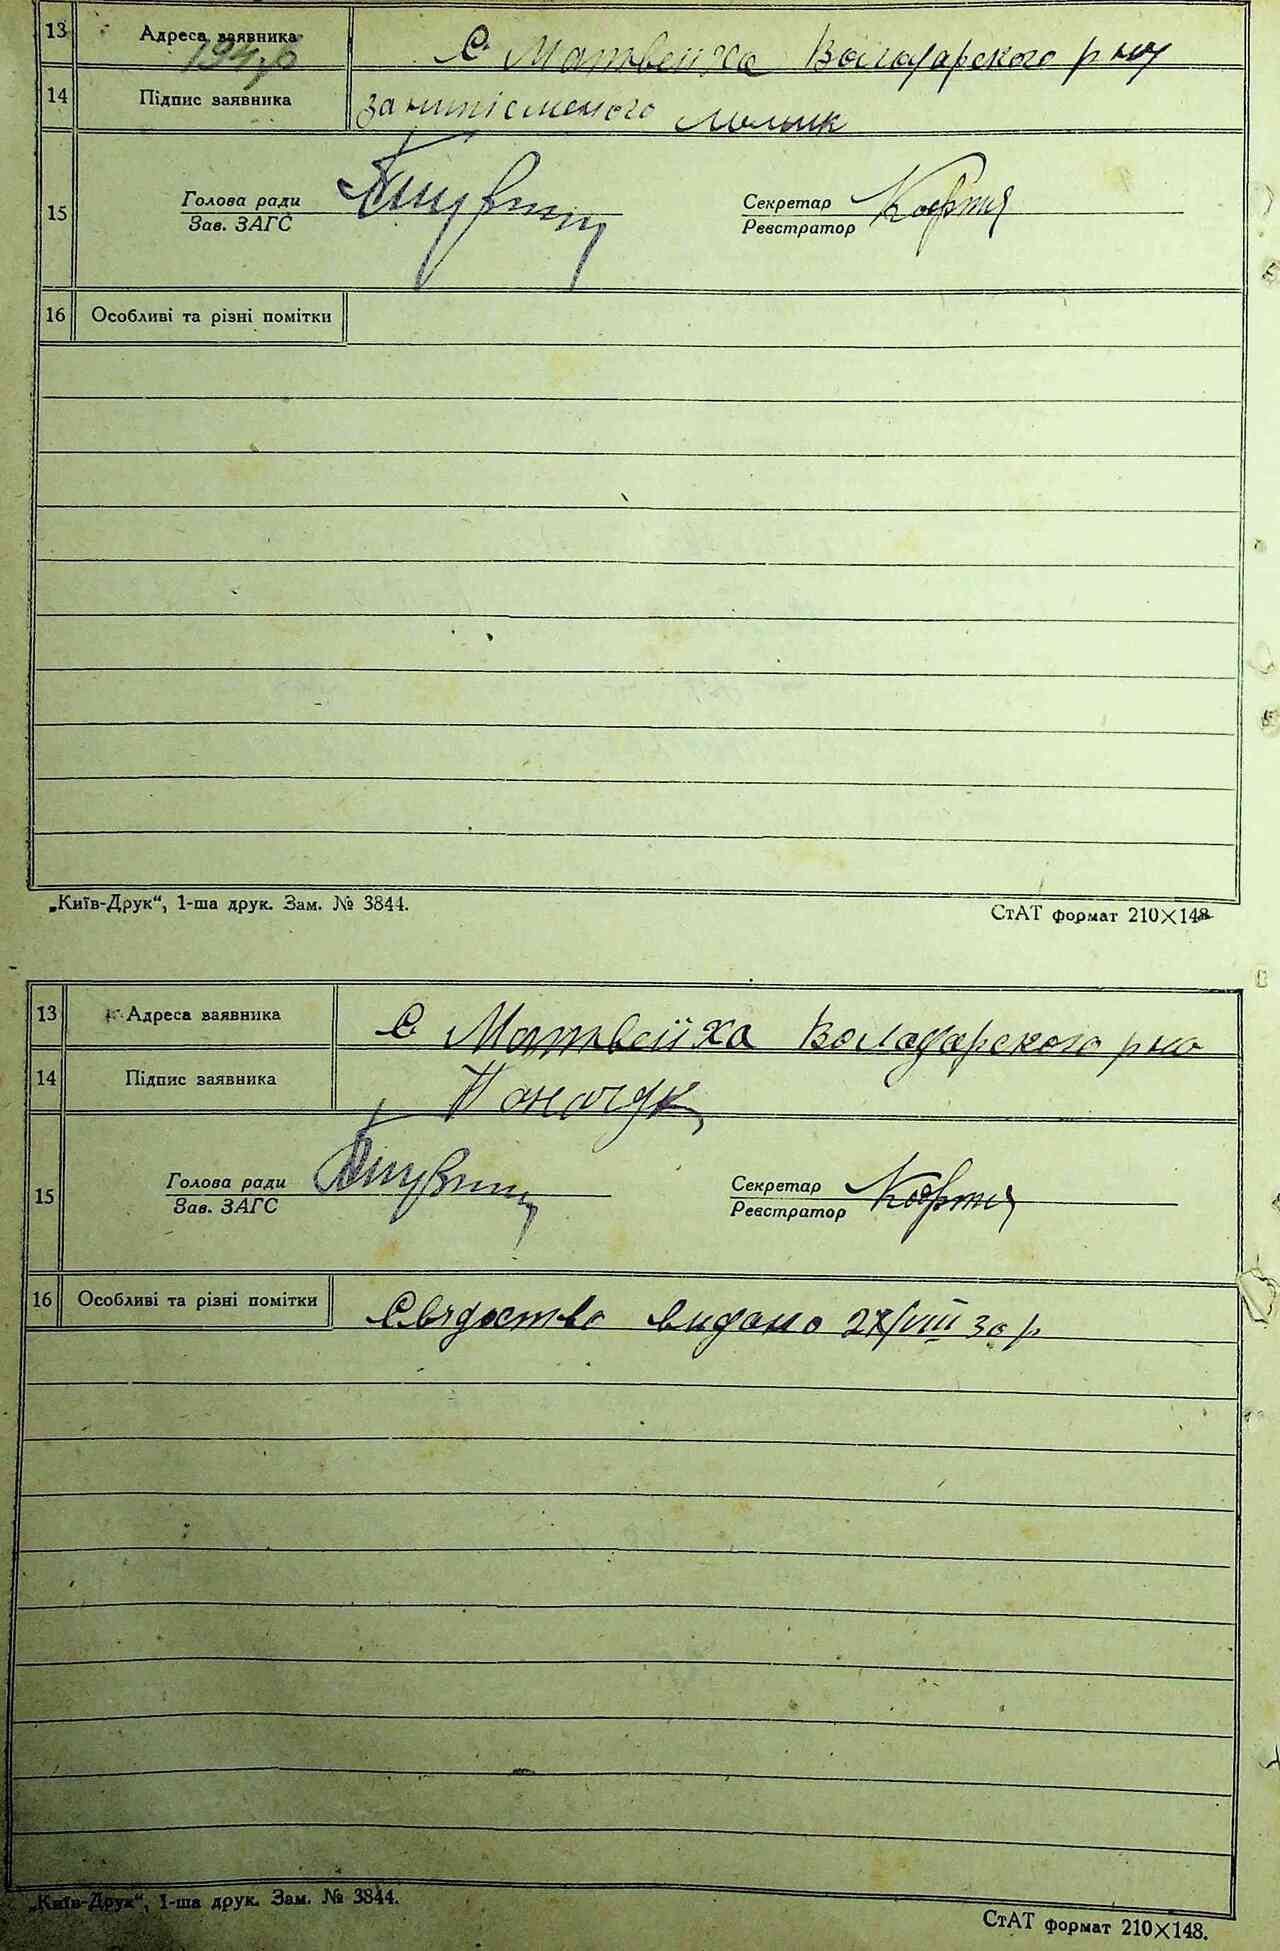 13 Адреса заявника С Матвейха Володарского р ну
14 Підпис заявника
15 Голова ради
Зав. ЗАГС
Секретар
Реєстратор
16 Особливі та різні помітки
„Київ-Друк“, 1-ша друк. Зам. № 3844.
СтАТ формат 210×148
13 Адреса заявника С Матвейха Володарского р на
14 Підпис заявника
15 Голова ради
Зав. ЗАГС
Секретар
Реєстратор
16 Особливі та різні помітки Свідоство видано
„Київ-Друк“, 1-ша друк. Зам. № 3844.
СтАТ формат 210×148.